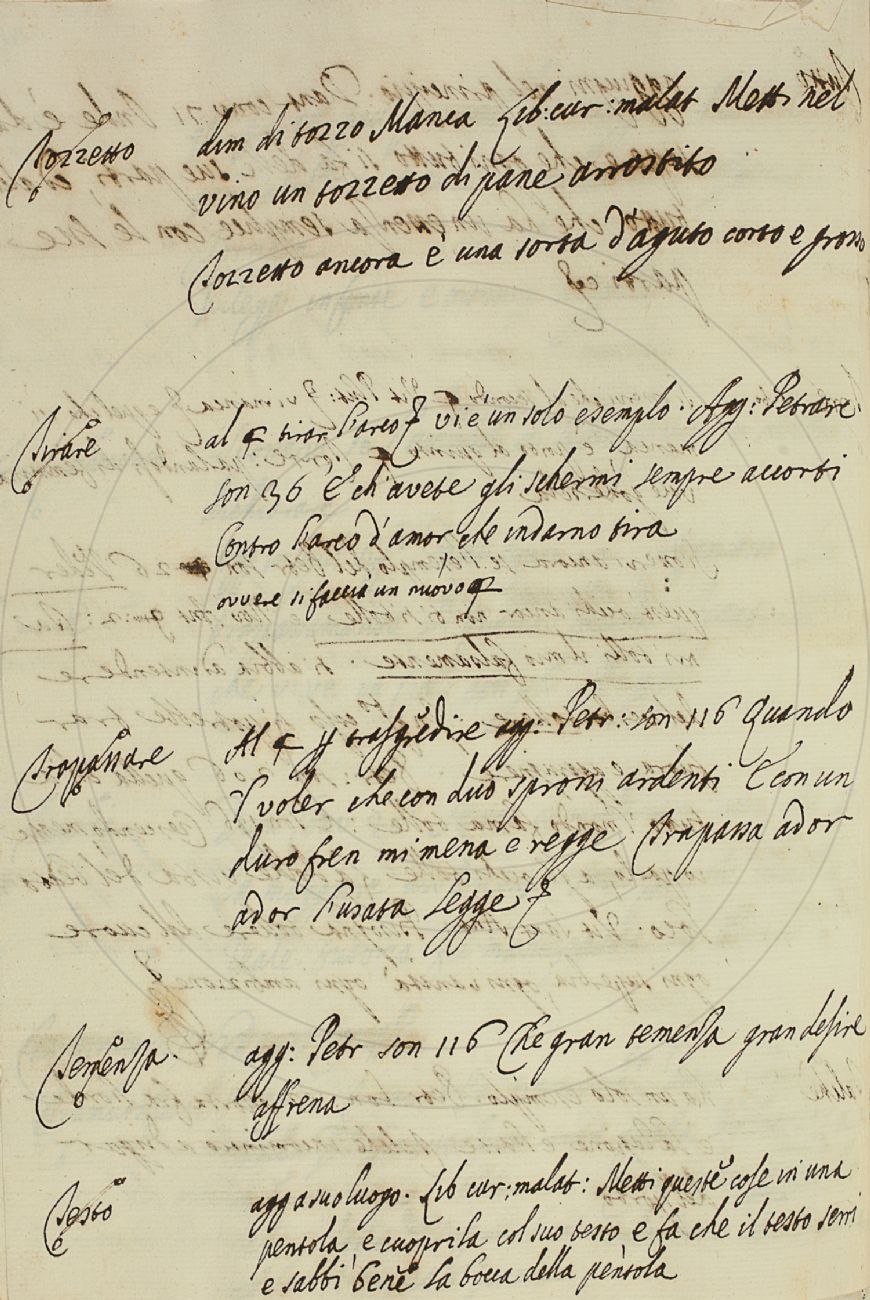 Tozzetto dim di tozzo Manca Lib: cur: malat Metti nel
vino un tozzetto di pane arrostito
Tozzetto ancora è una sorta d'aguto corto e grosso
Tirare al § tirar l'arco vi è un solo esemplo. Agg: Petrarc
son 36 E ch'avete gli schermi sempre accorti
Contro l'arco d'amor che indarno tira
ovvere si faccia un nuovo §
Trapassare Al § trasgredire agg: Petr: son 116 Quando
'l voler che con duo sproni ardenti E con un
duro fren mi mena e regge Trapassa ador
ador l'usata legge
Temenza. agg: Petr son 116 Che gran temenza gran desire
affrena
Testo agg a suo luogo. Lib cur: malat: Metti queste cose in una
pentola, e cuoprila col suo testo e fa che il testo serri
e sabbi bene la bocca della pentola